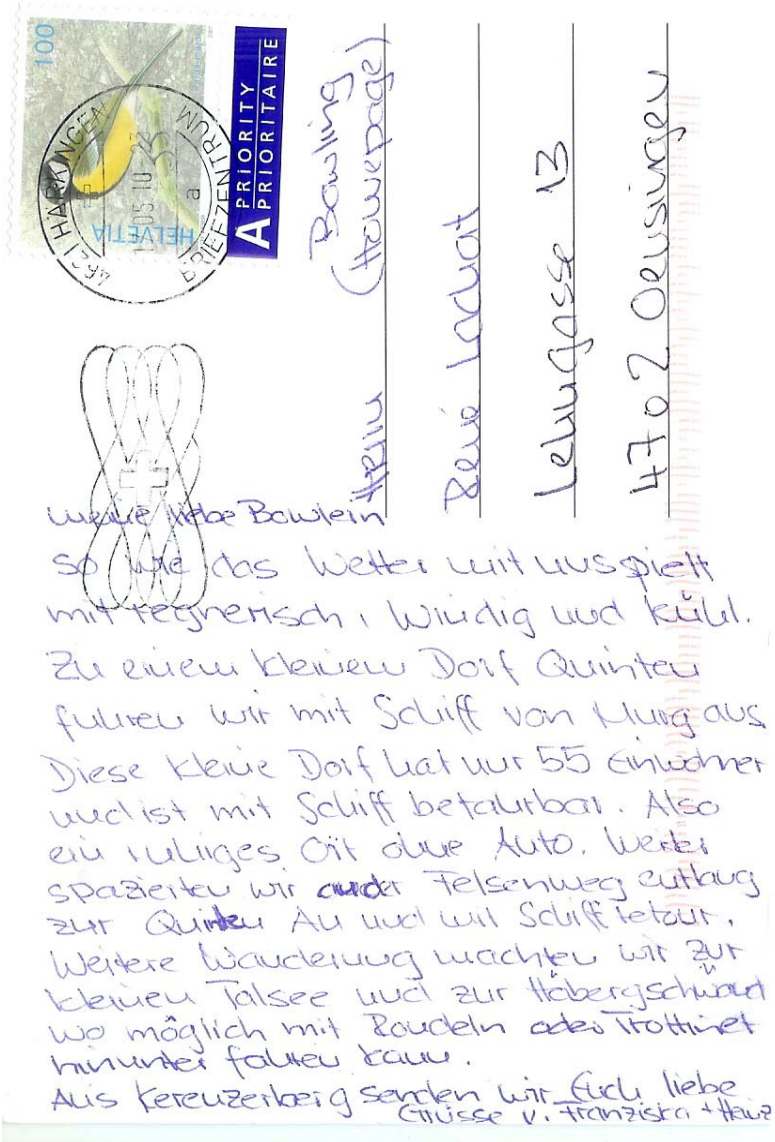 100
HELVETIA
A PRIORITY
PRIORITAIRE
4621 HÄRKINGEN
05.10
a
BRIEFZENTRUM
Bowling
(Homepage)
Herrn
René Lachat
Lehngasse 13
4702 Oensingen
Meine liebe Bowlein
so wie das Wetter mit uns spielt
mit regnerisch, windig und kühl.
Zu einem kleinem Dorf Quinten
fuhren wir mit Schiff von Murg aus
Diese kleine Dorf hat nur 55 Einwohner
und ist mit Schiff befahrbar. Also
ein ruhiges Ort ohne Auto. Weiter
spazierten wir an der Felsenweg entlang
zur Quinten Au und mit Schiff retour.
Weitere Wanderung machten wir zur
kleinen Talsee und zur Habergschwänd
wo möglich mit Rondeln oder Trottinet
hinunter fahren kann.
Aus Kerenzerberg senden wir Euch liebe
Grüsse v. Franziska + Heinz